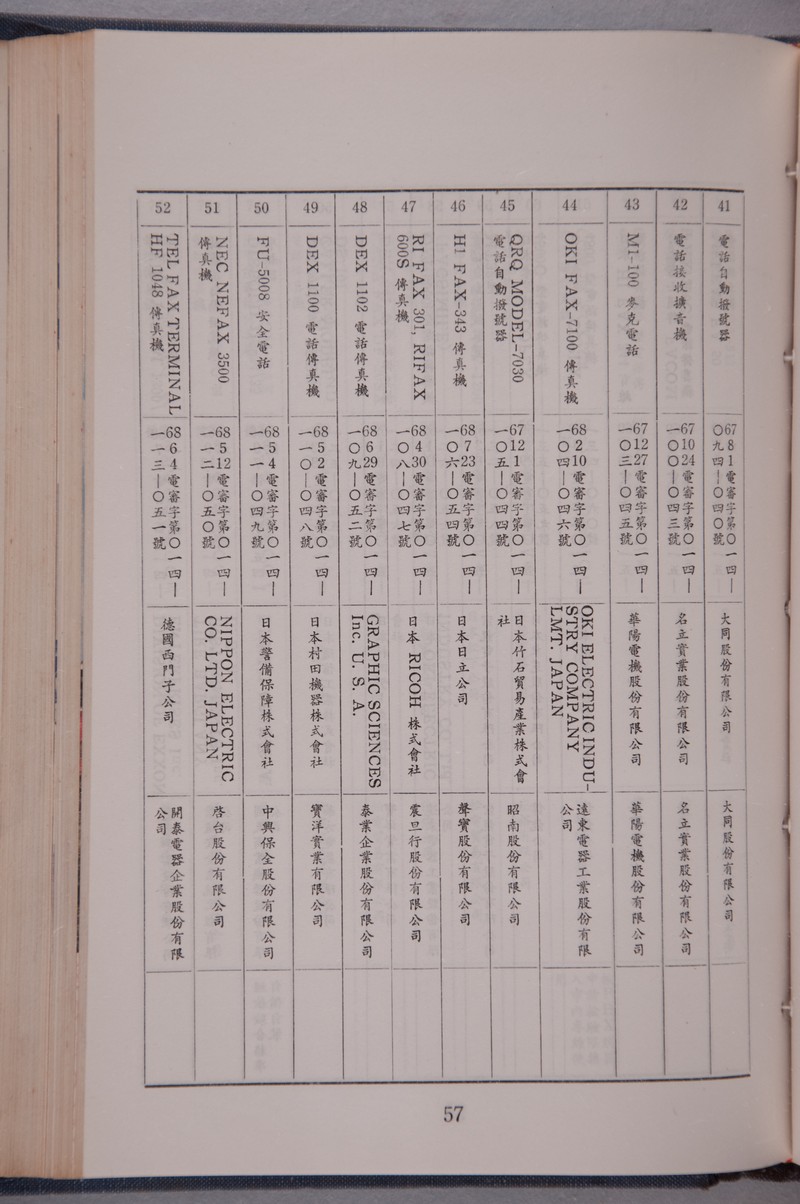 41
電話自動撥號器
67 8 1 電審字第〇一四—
〇九四—〇四〇號
大同股份有限公司
大同股份有限公司
42
電話接收擴音機
67 10 24 電審字第〇一四—
一〇〇—〇四三號
名立實業股份有限公司
名立實業股份有限公司
43
MT-100 麥克電話
67 12 27 電審字第〇一四—
一〇三—〇四五號
華陽電機股份有限公司
華陽電機股份有限公司
44
OKI FAX-7100 傳真機
68 2 10 電審字第〇一四—
一〇四—〇四六號
OKI ELECTRIC INDU-
STRY COMPANY
LMT. JAPAN
遠東電器工業股份有限
公司
45
QRQ MODEL-7030
電話自動撥號器
67 12 1 電審字第〇一四—
一〇五—〇四四號
日本竹石貿易產業株式會
社
昭南股份有限公司
46
HI FAX-343 傳真機
68 7 23 電審字第〇一四—
一〇六—〇五四號
日本日立公司
聲寶股份有限公司
47
RI FAX 301, RIFAX
600S 傳真機
68 4 30 電審字第〇一四—
一〇八—〇四七號
日本 RICOH 株式會社
震旦行股份有限公司
48
DEX 1102 電話傳真機
68 6 29 電審字第〇一四—
一〇九—〇五二號
GRAPHIC SCIENCES
Inc. U. S. A.
泰業企業股份有限公司
49
DEX 1100 電話傳真機
68 5 2 電審字第〇一四—
一一〇—〇四八號
日本村田機器株式會社
寶洋實業有限公司
50
FU-5008 安全電話
68 5 4 電審字第〇一四—
一一一—〇四九號
日本警備保障株式會社
中興保全股份有限公司
51
NEC NEFAX 3500
傳真機
68 5 12 電審字第〇一四—
一一二—〇五〇號
NIPPON ELECTRIC
CO. LTD. JAPAN
啓台股份有限公司
52
TEL FAX TERMINAL
HF 1048 傳真機
68 6 4 電審字第〇一四—
一一三—〇五一號
德國西門子公司
開泰電器企業股份有限
公司
57